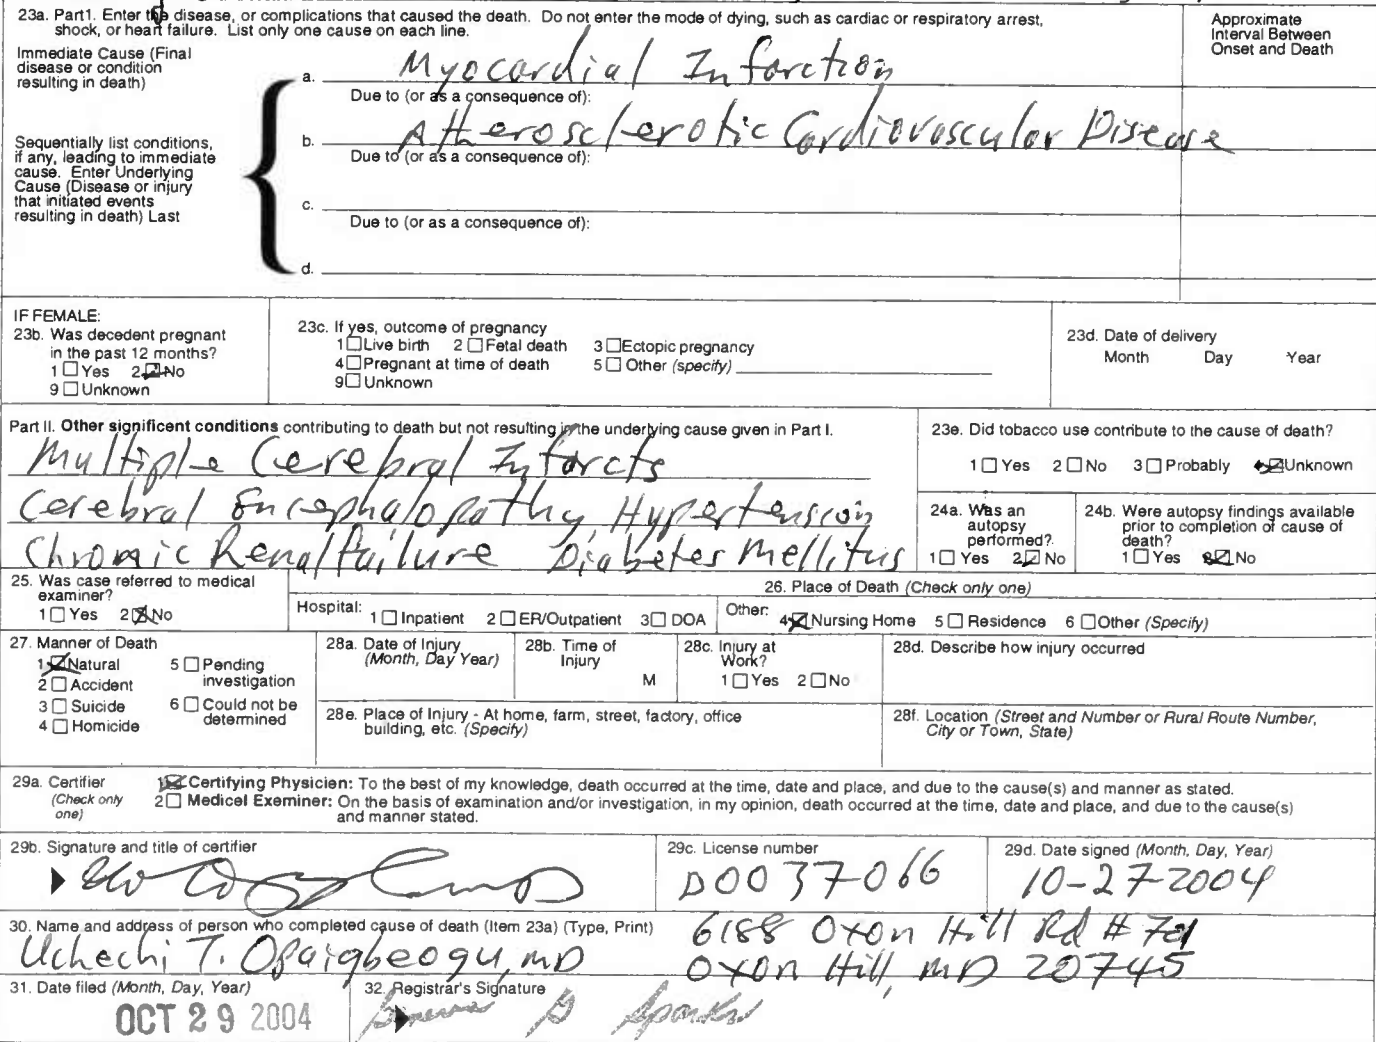 23a. Part1. Enter the disease, or complications that caused the death. Do not enter the mode of dying, such as cardiac or respiratory arrest,
shock, or heart failure. List only one cause on each line.
Approximate
Interval Between
Onset and Death
Immediate Cause (Final
disease or condition
resulting in death)
a. Myocardial Infarction
Due to (or as a consequence of):
Sequentially list conditions,
if any, leading to immediate
cause. Enter Underlying
Cause (Disease or injury
that initiated events
resulting in death) Last
b. Atherosclerotic Cardiovascular Disease
Due to (or as a consequence of):
c.
Due to (or as a consequence of):
d.
IF FEMALE:
23b. Was decedent pregnant
in the past 12 months?
1 ☐ Yes 2 ☑ No
9 ☐ Unknown
23c. If yes, outcome of pregnancy
1 ☐ Live birth 2 ☐ Fetal death 3 ☐ Ectopic pregnancy
4 ☐ Pregnant at time of death 5 ☐ Other (specify)
9 ☐ Unknown
23d. Date of delivery
Month Day Year
Part II. Other significent conditions contributing to death but not resulting in the underlying cause given in Part I.
Multiple Cerebral Infarcts
Cerebral Encephalopathy, Hypertension
Chronic Renal failure Diabetes Mellitus
23e. Did tobacco use contribute to the cause of death?
1 ☐ Yes 2 ☐ No 3 ☐ Probably ☑ Unknown
24a. Was an
autopsy
performed?
1 ☐ Yes 2 ☑ No
24b. Were autopsy findings available
prior to completion of cause of
death?
1 ☐ Yes ☑ No
25. Was case referred to medical
examiner?
1 ☐ Yes 2 ☒ No
26. Place of Death (Check only one)
Hospital: 1 ☐ Inpatient 2 ☐ ER/Outpatient 3 ☐ DOA
Other: 4 ☒ Nursing Home 5 ☐ Residence 6 ☐ Other (Specify)
27. Manner of Death
1 ☑ Natural 5 ☐ Pending
investigation
2 ☐ Accident
3 ☐ Suicide 6 ☐ Could not be
determined
4 ☐ Homicide
28a. Date of Injury
(Month, Day Year)
28b. Time of
Injury
M
28c. Injury at
Work?
1 ☐ Yes 2 ☐ No
28d. Describe how injury occurred
28e. Place of Injury - At home, farm, street, factory, office
building, etc. (Specify)
28f. Location (Street and Number or Rural Route Number,
City or Town, State)
29a. Certifier
(Check only
one)
1 ☒ Certifying Physicien: To the best of my knowledge, death occurred at the time, date and place, and due to the cause(s) and manner as stated.
2 ☐ Medicel Exeminer: On the basis of examination and/or investigation, in my opinion, death occurred at the time, date and place, and due to the cause(s)
and manner stated.
29b. Signature and title of certifier
29c. License number
D0037066
29d. Date signed (Month, Day, Year)
10-27-2004
30. Name and address of person who completed cause of death (Item 23a) (Type, Print)
Uchechi T. Opaigbeogu, MD
6188 Oxon Hill Rd # 701
Oxon Hill, MD 20745
31. Date filed (Month, Day, Year)
OCT 29 2004
32. Registrar's Signature